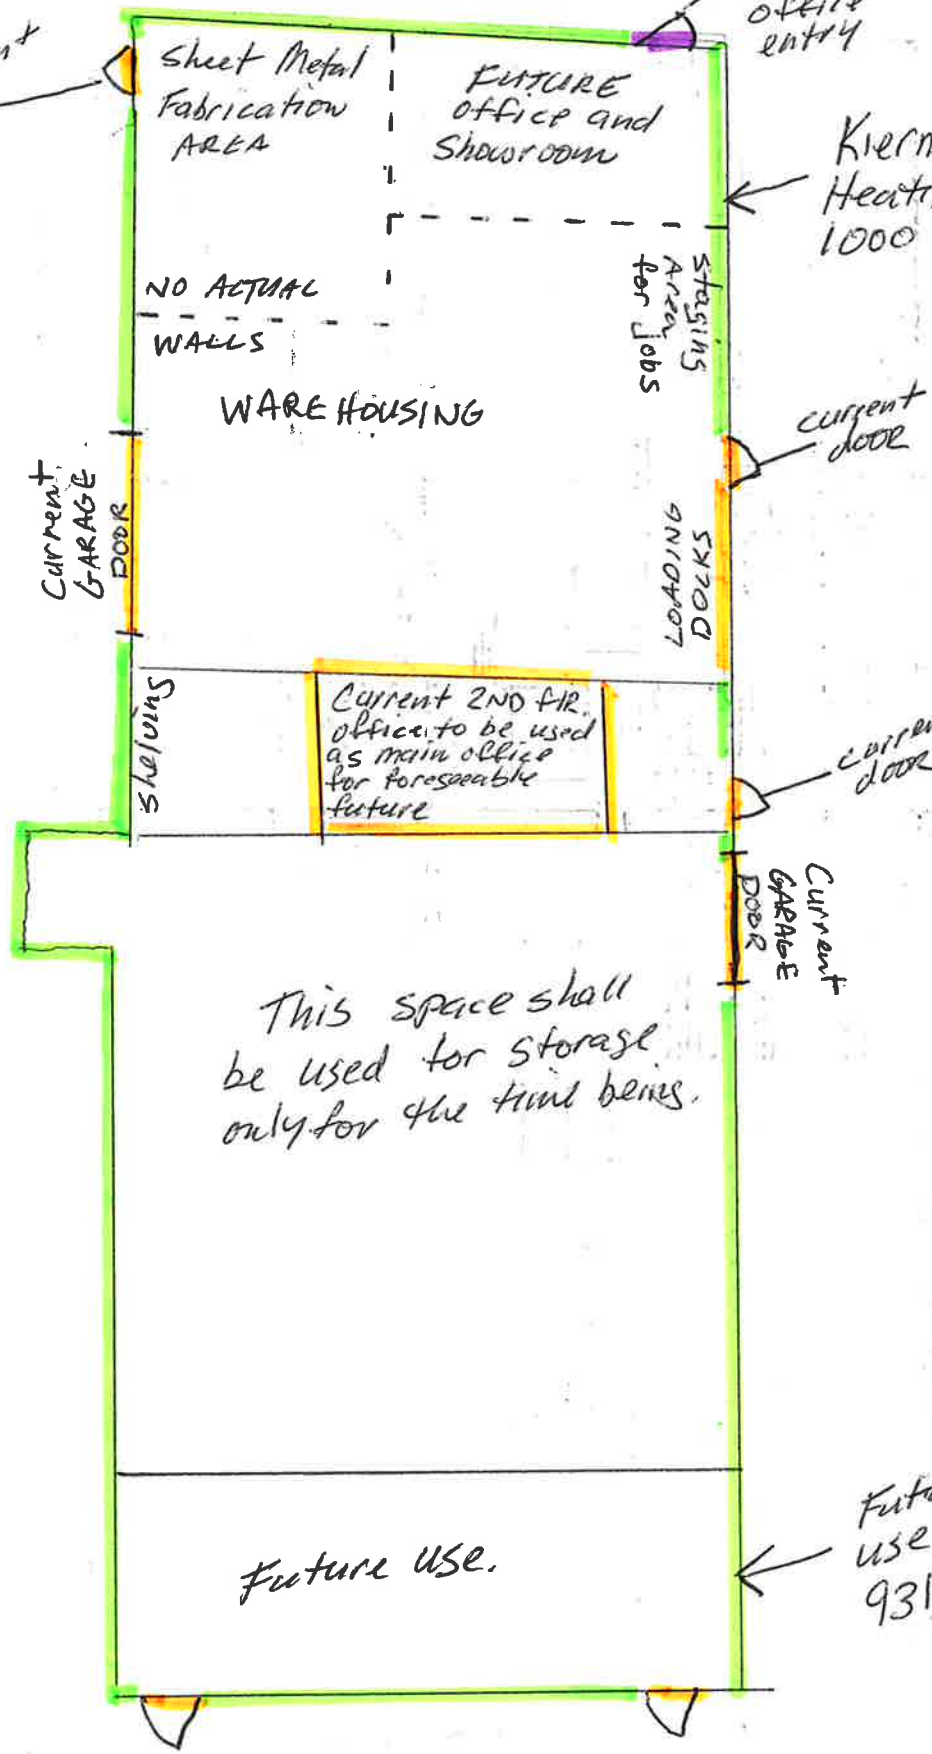 office
entry
Sheet Metal
Fabrication
AREA
FUTURE
office and
Showroom
Heat
1000
NO ACTUAL
WALLS
staging
Area
for jobs
WAREHOUSING
current
door
Current
GARAGE
DOOR
LOADING
DOCKS
shelving
Current 2ND flR.
office to be used
as main office
for foreseeable
future
door
Current
GARAGE
DOOR
This space shall
be used for storage
only for the time being.
Future use.
use
931